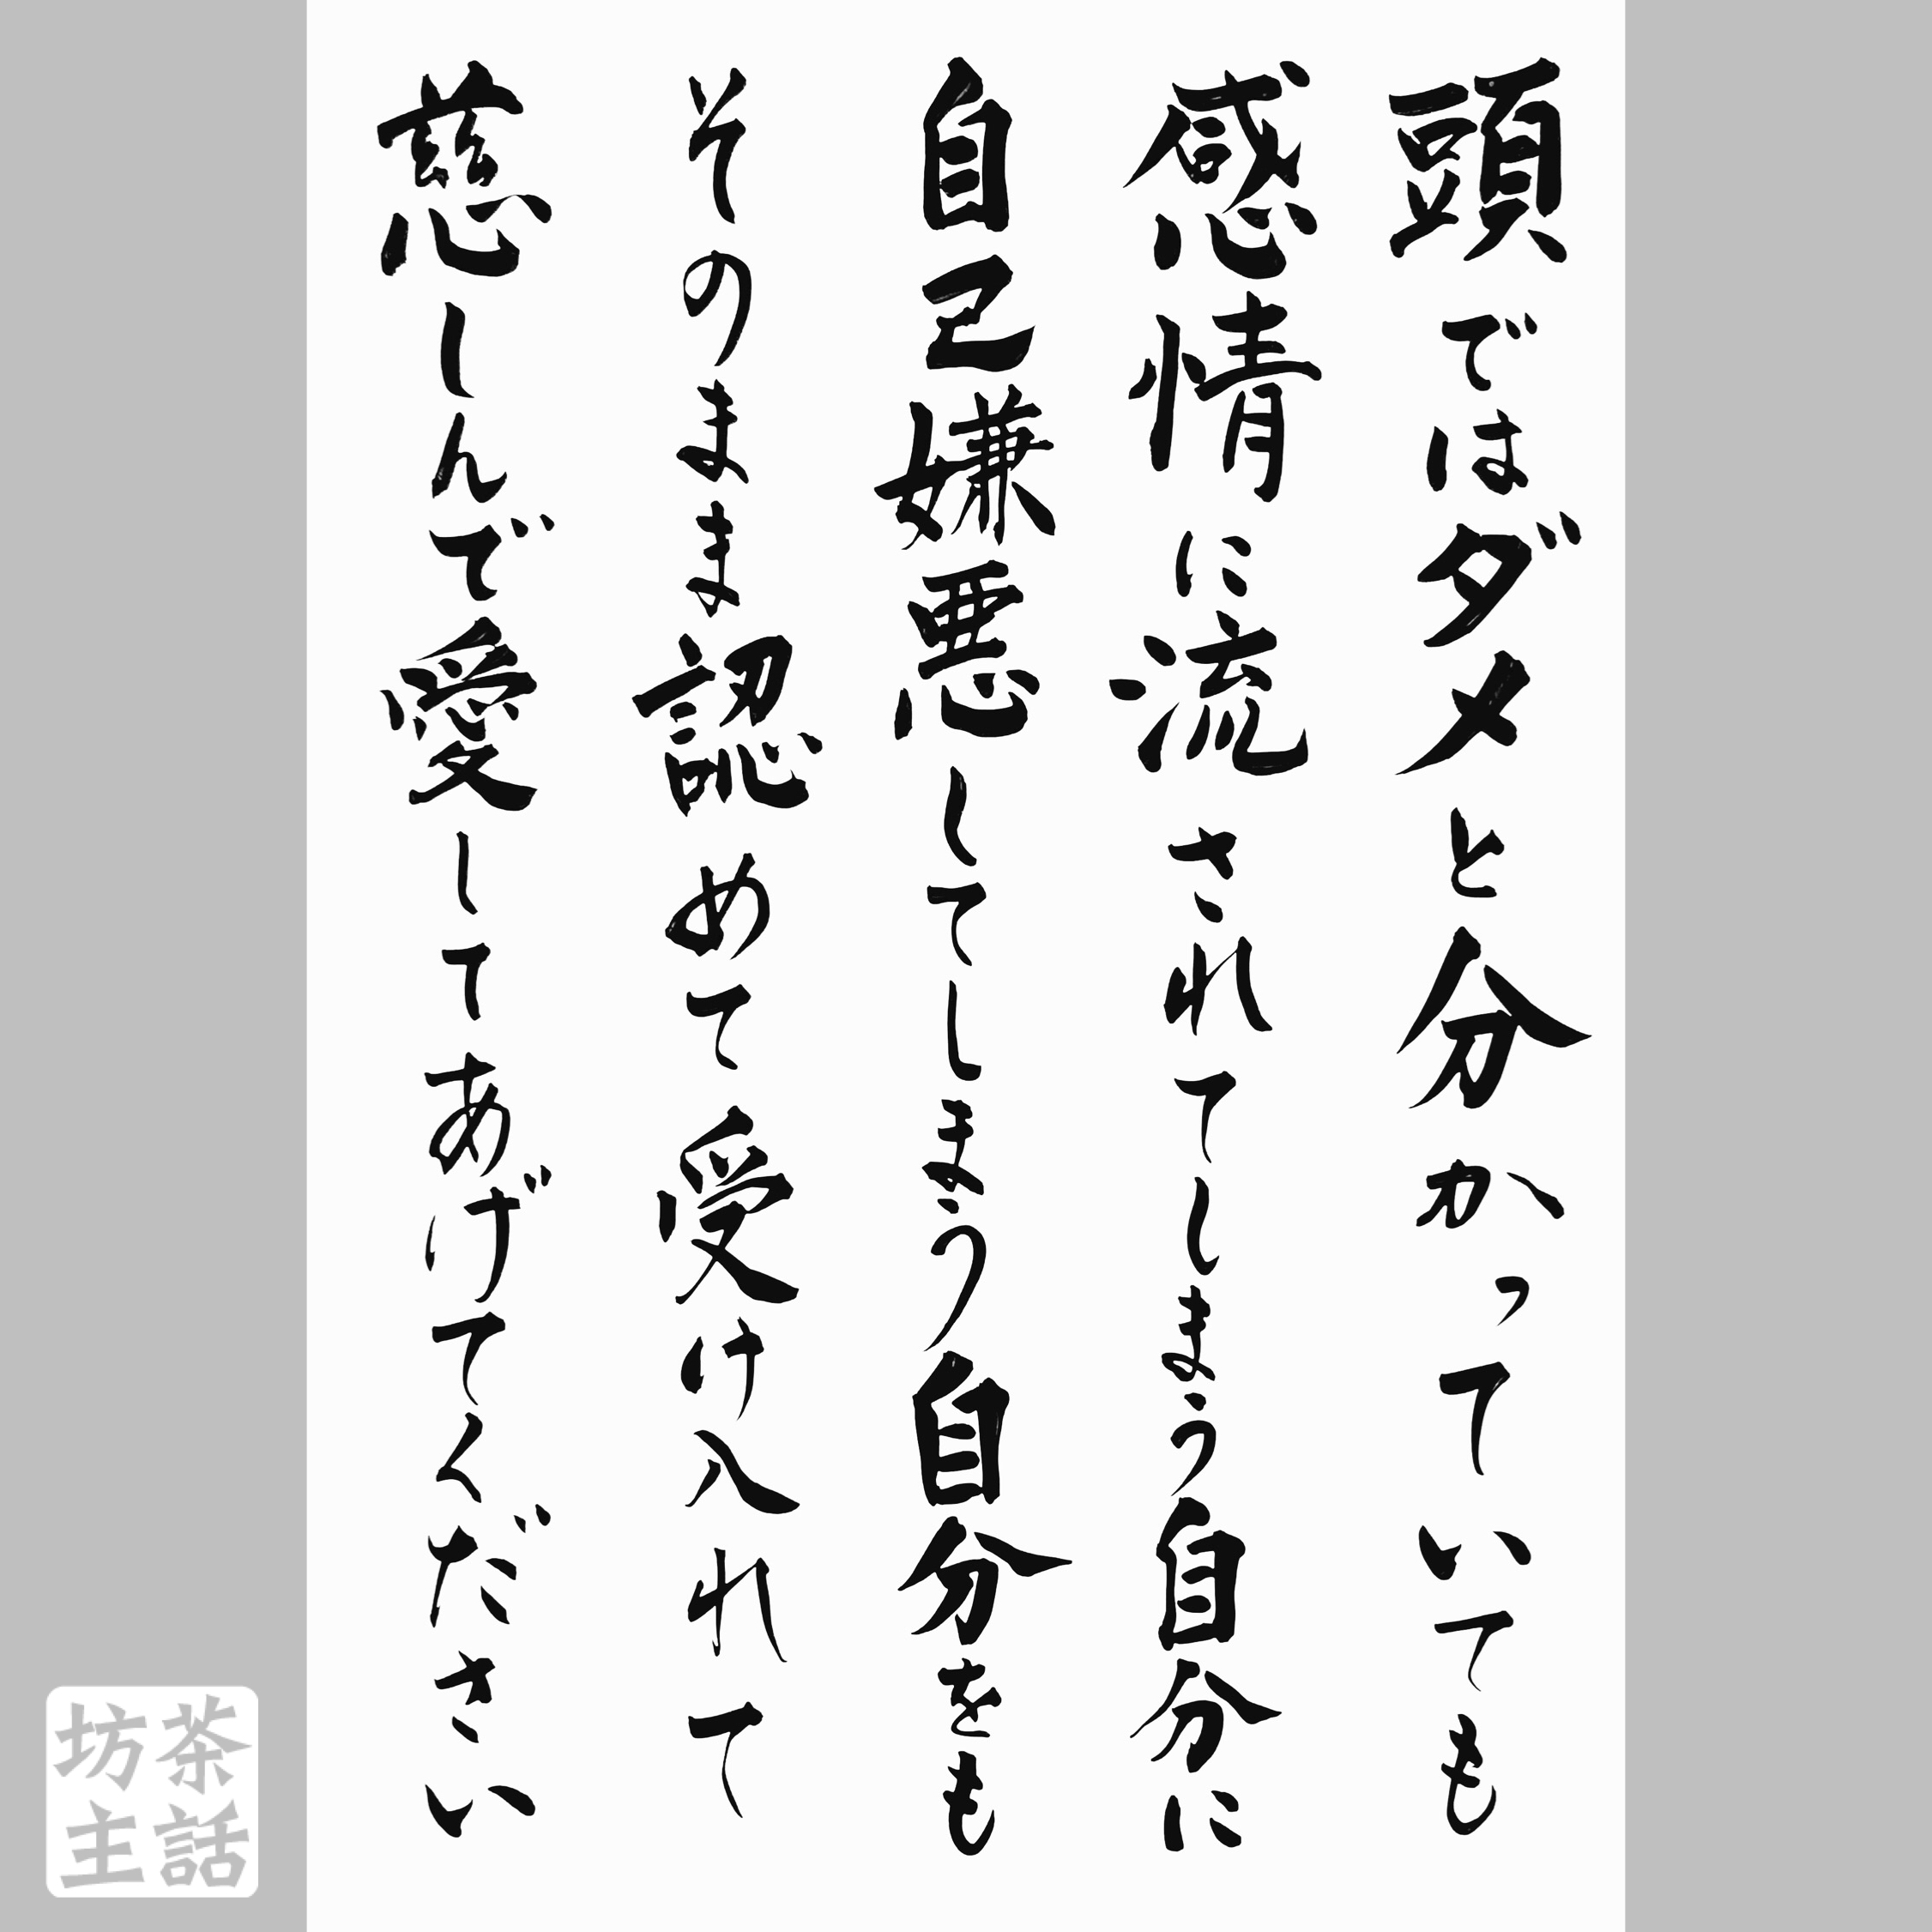 頭ではダメと分かっていても
感情に流されてしまう自分に
自己嫌悪してしまう自分をも
そのまま認めて受け入れて
慈しんで愛してあげてください
茶話
坊主